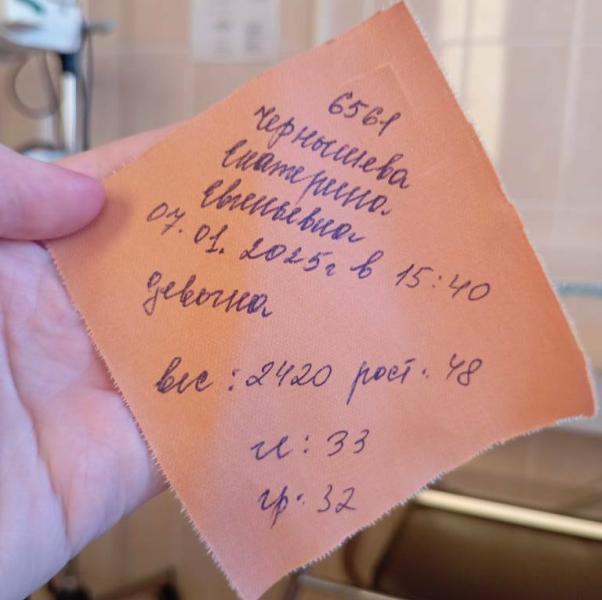 6561
Чернышева
Екатерина
Евгеньевна
07.01.2025г в 15:40
девочка
вес: 2420 рост. 48
гл: 33
гр. 32